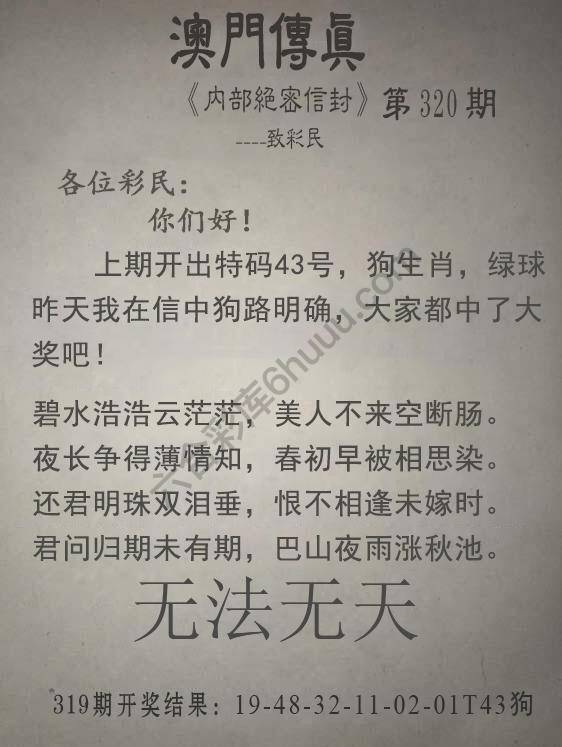 澳門傳真
《内部絕密信封》第320期
----致彩民
各位彩民：
你们好！
上期开出特码43号，狗生肖，绿球
昨天我在信中狗路明确，大家都中了大
奖吧！
碧水浩浩云茫茫，美人不来空断肠。
夜长争得薄情知，春初早被相思染。
还君明珠双泪垂，恨不相逢未嫁时。
君问归期未有期，巴山夜雨涨秋池。
无法无天
319期开奖结果：19-48-32-11-02-01T43狗
六合彩库6huuu.com